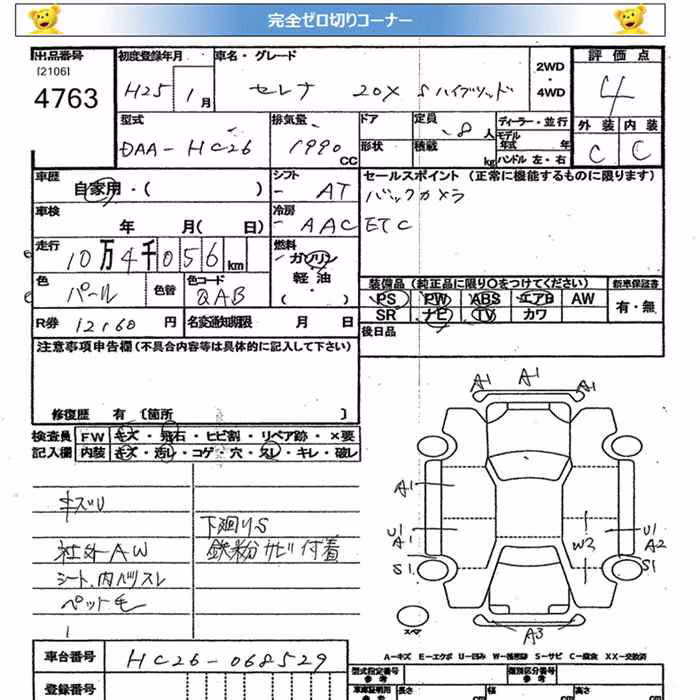 完全ゼロ切りコーナー
出品番号 初度登録年月 車名・グレード 2WD・4WD 評価点
[2106]
4763 H25 1月 セレナ 20X Sハイブリッド 4
型式 排気量 ドア 定員 8人 ディーラー・並行 外装 内装
DAA-HC26 1990 CC 形状 積載 kg モデル年式 年 ハンドル 左・右 C C
車歴 シフト セールスポイント (正常に機能するものに限ります)
自家用・( ) AT バックカメラ
車検 年 月( 日) 冷房 AAC ETC
走行 10万4千056km 燃料 ガソリン
軽油・( )
色 パール 色替 色コード QAB 装備品 (純正品に限り○をつけてください) 新車保証書
PS PW ABS エアB AW 有・無
R券 12160円 名変通知期限 月 日 SR ナビ TV カワ
後日品
注意事項申告欄 (不具合内容等は具体的に記入して下さい)
修復歴 有 [箇所 ]
検査員 FW キズ・飛石・ヒビ割・リペア跡・×要
記入欄 内装 キズ・汚レ・コゲ・穴・スレ・キレ・破レ
キズU
下廻りS
社外AW 鉄粉サビ付着
シート、内ハリスレ
ペット毛
A1 A1 A1
A1
U1 A1 W3 U1 A2
S1 S1
スペア A3
A=キズ E=エクボ U=凹み W=補修跡 S=サビ C=腐食 XX=交換済
車台番号 HC26-068529
登録番号
型式指定番号 参考 類別区分番号 参考
車庫証明用参考 長さ cm 幅 cm 高さ cm